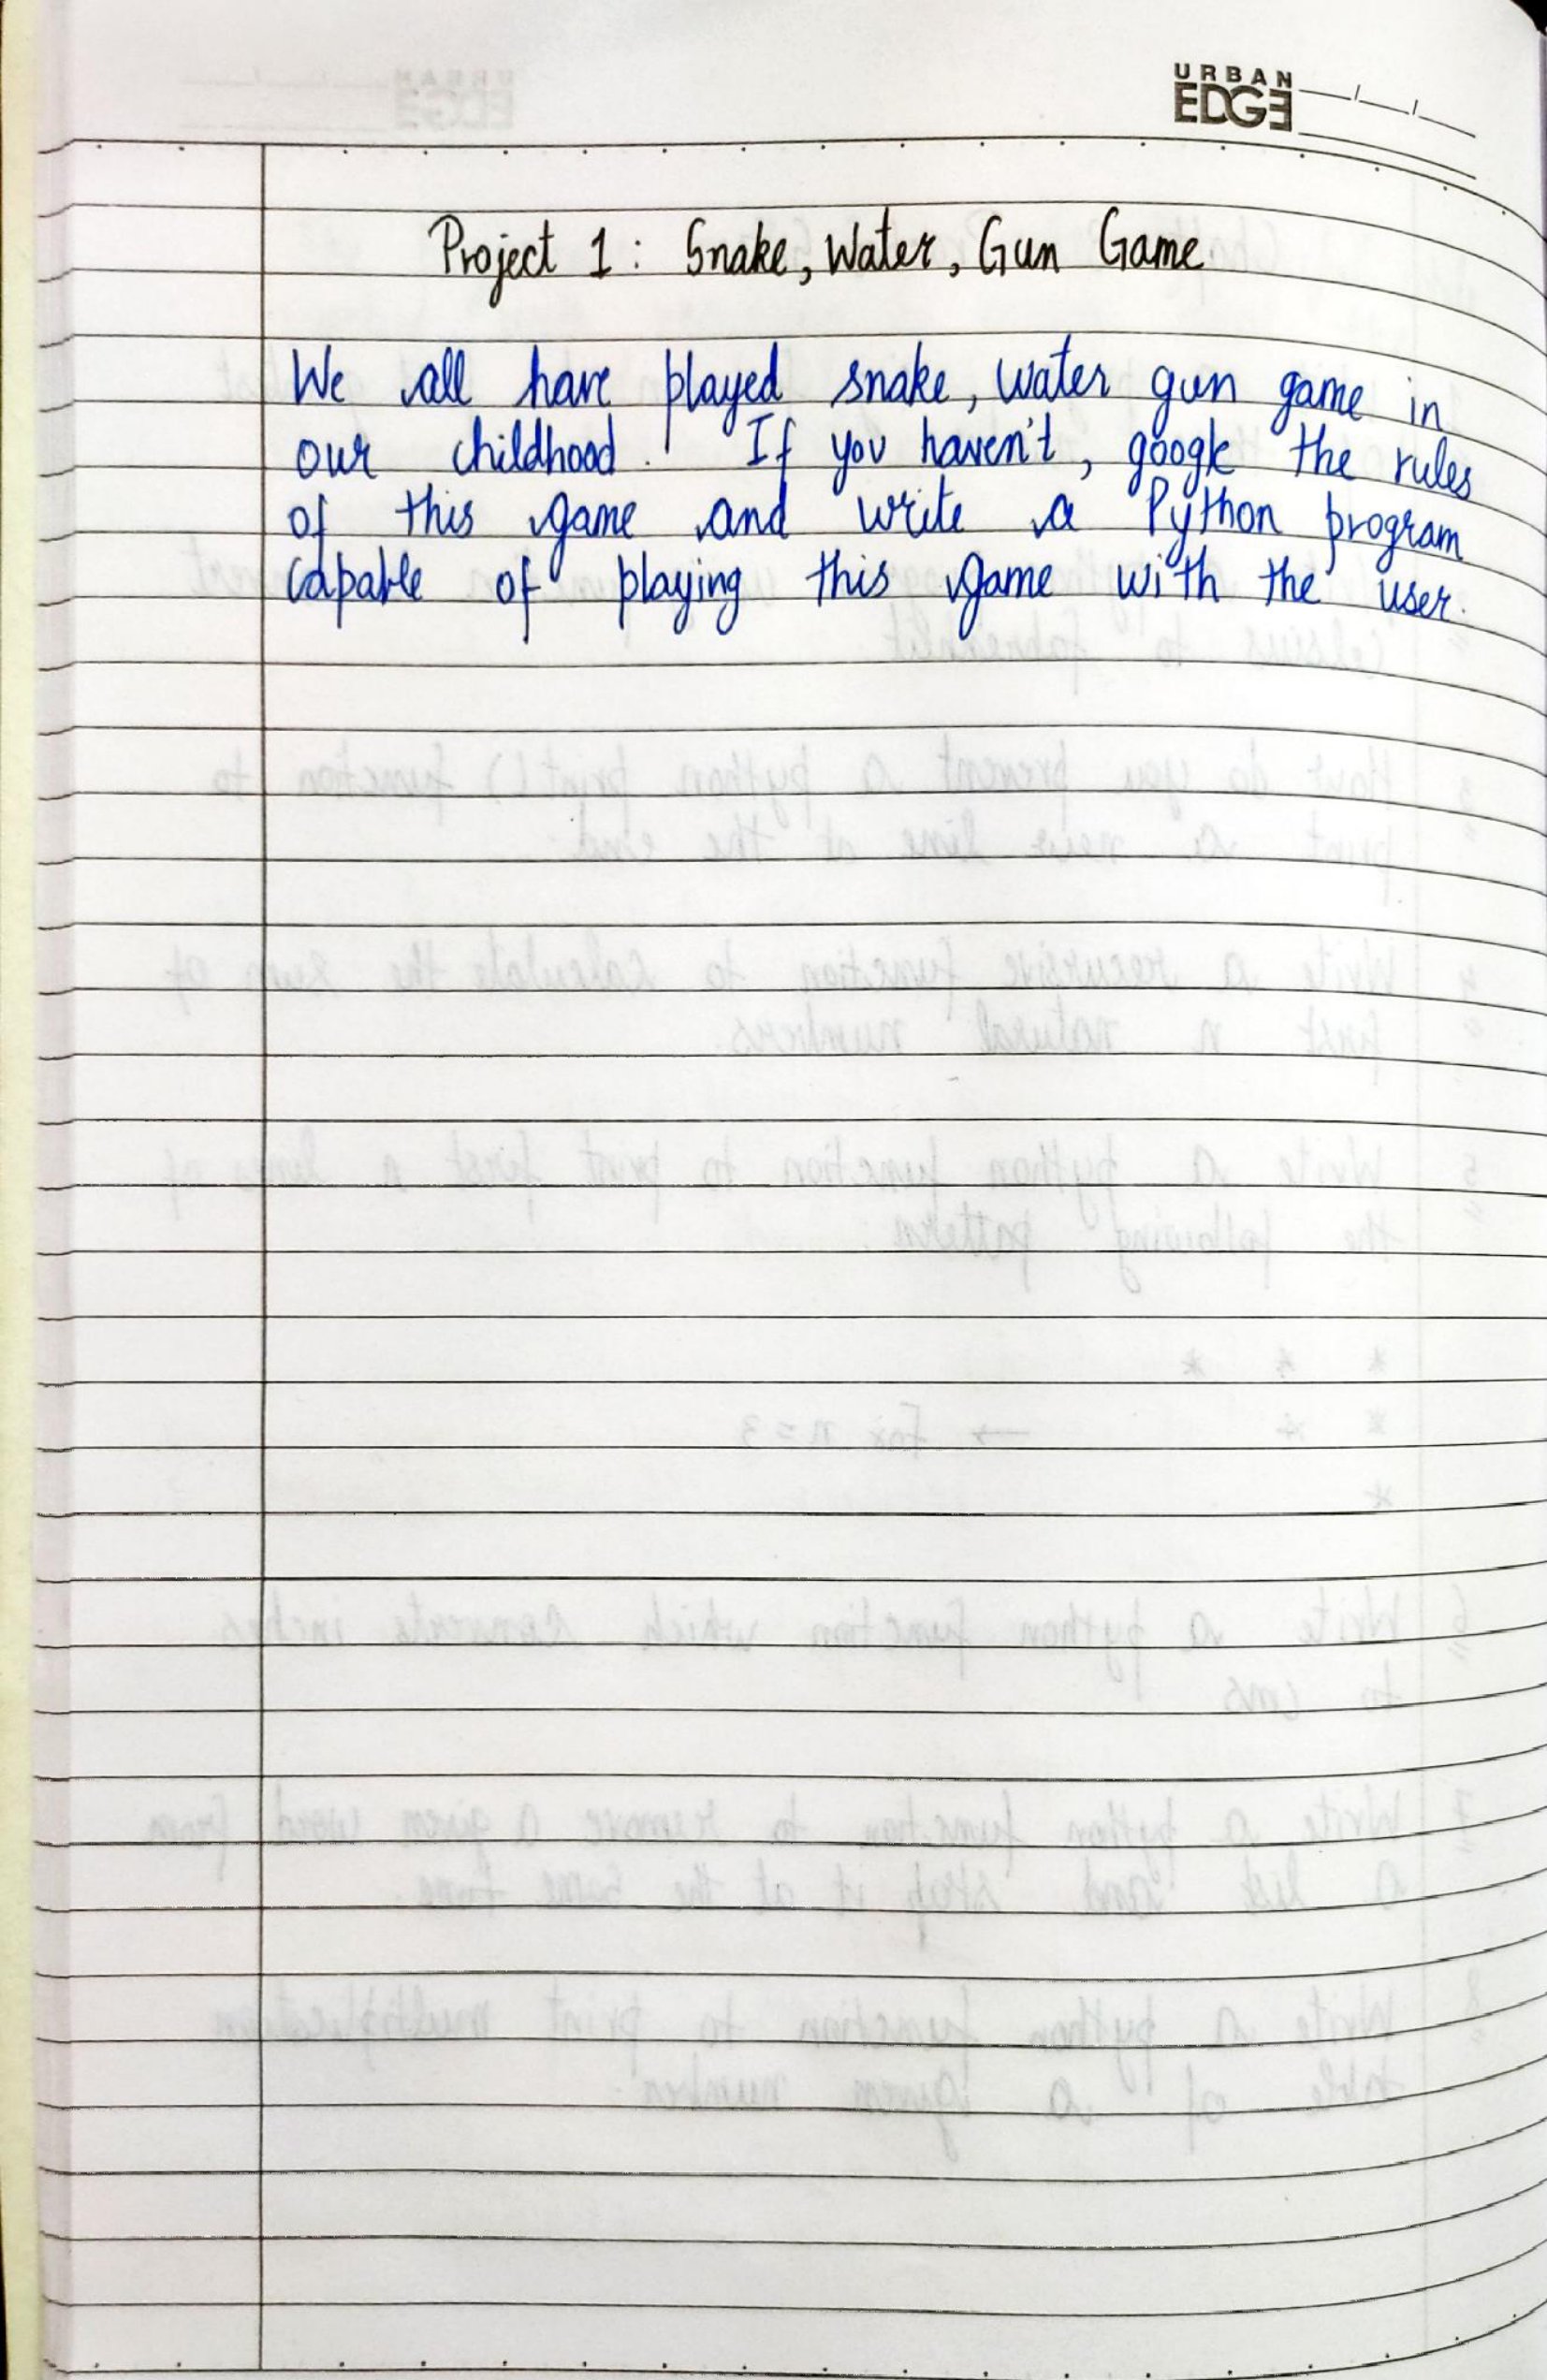 URBAN
EDGE
Project 1: Snake, Water, Gun Game
We all have played snake, water gun game in
our childhood. If you haven't, google the rules
of this game and write a Python program
capable of playing this game with the user.